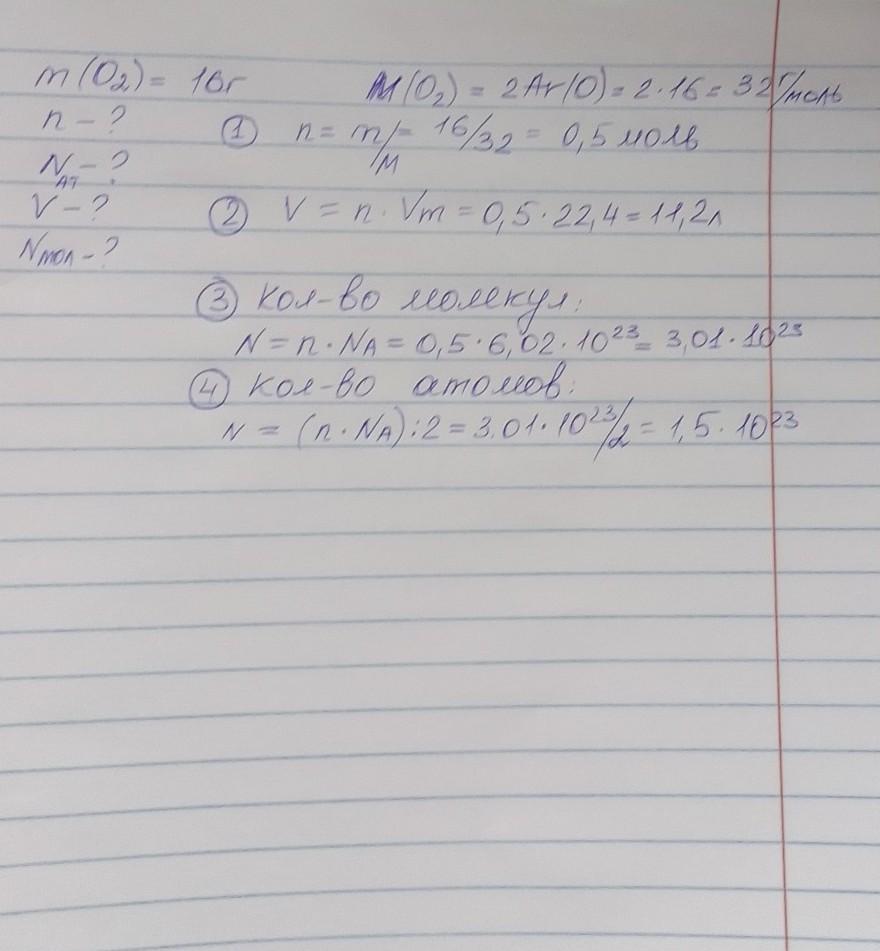 m(O₂) = 16г M(O₂) = 2Ar(O) = 2·16 = 32 г/моль
n - ? ① n = m/M = 16/32 = 0,5 моль
Nат - ?
V - ? ② V = n · Vm = 0,5 · 22,4 = 11,2л
Nмол - ?
③ кол-во молекул:
N = n · NA = 0,5 · 6,02 · 10²³ = 3,01 · 10²³
④ кол-во атомов:
N = (n · NA) : 2 = 3,01 · 10²³/2 = 1,5 · 10²³